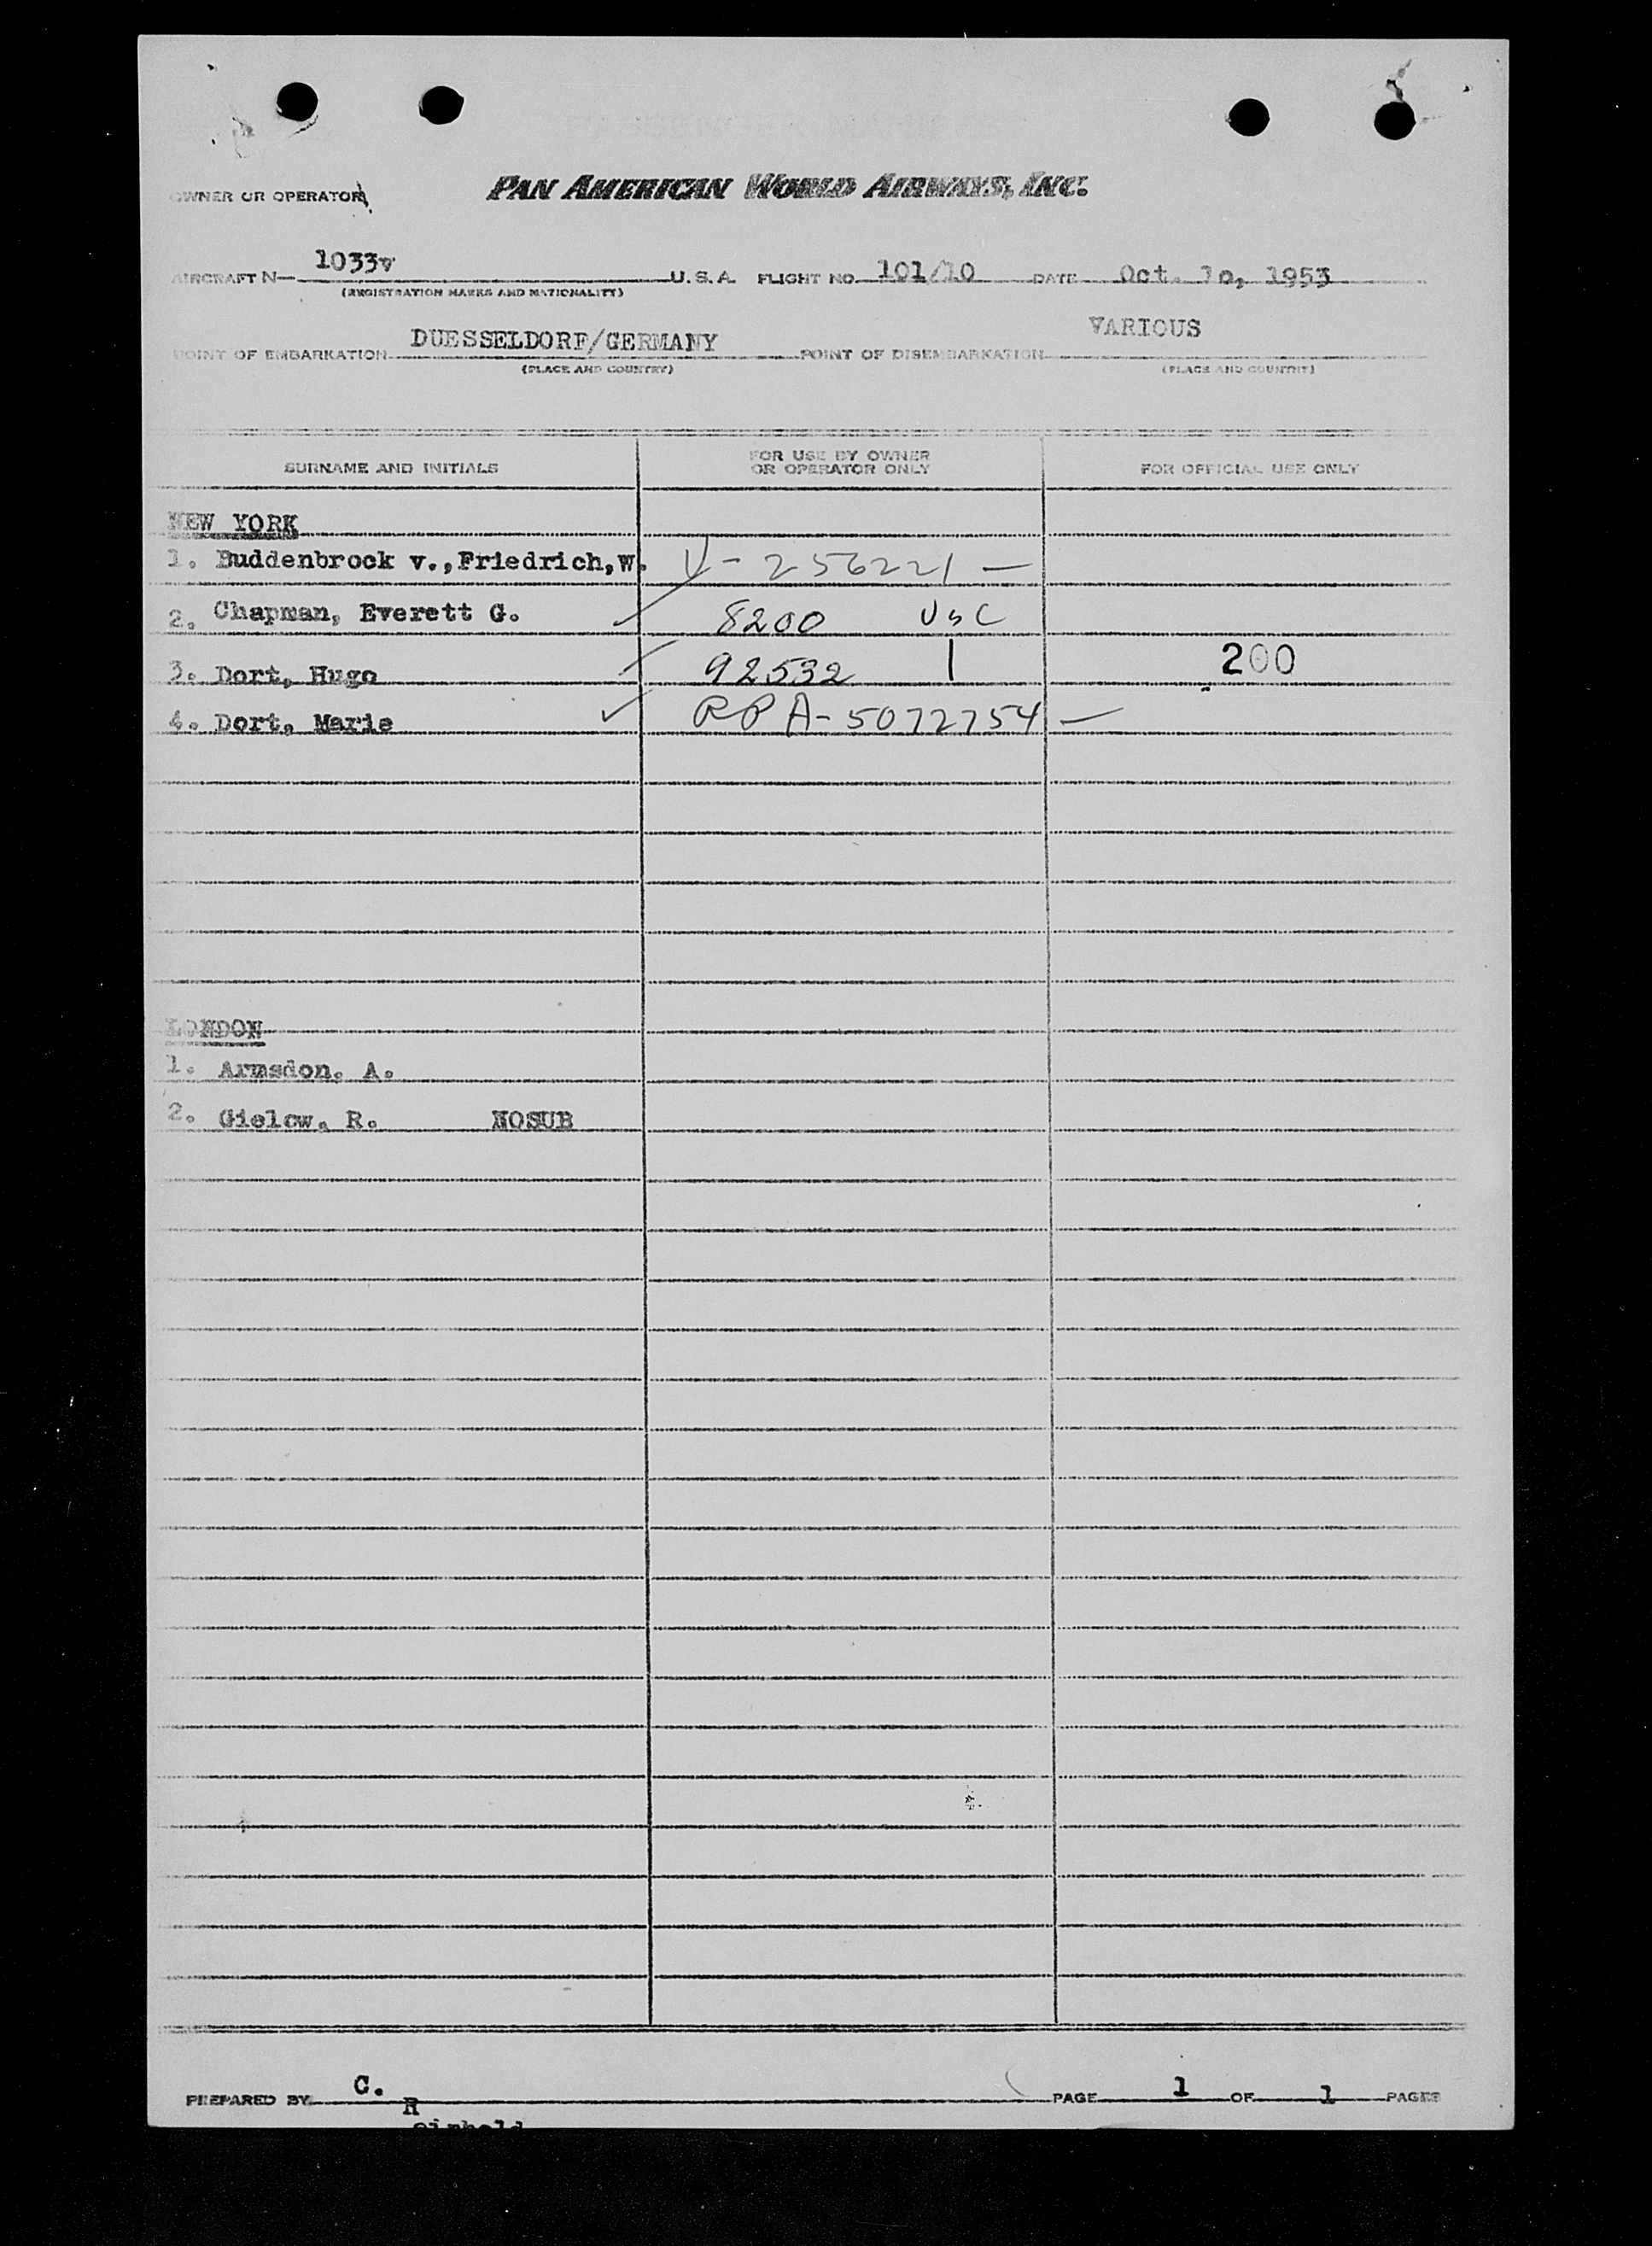 OWNER OR OPERATOR
PAN AMERICAN WORLD AIRWAYS, INC.
AIRCRAFT N— 1033v U.S.A. FLIGHT NO. 101/10 DATE Oct. 1o, 1953
(REGISTRATION MARKS AND NATIONALITY)
POINT OF EMBARKATION DUESSELDORF/GERMANY POINT OF DISEMBARKATION VARIOUS
(PLACE AND COUNTRY) (PLACE AND COUNTRY)
SURNAME AND INITIALS FOR USE BY OWNER OR OPERATOR ONLY FOR OFFICIAL USE ONLY
NEW YORK
1. Buddenbrock v.,Friedrich,W. V-256221 —
2. Chapman, Everett G. 8200 UsC
3. Dort, Hugo 92532 | 200
4. Dort, Marie RPA-5072754 —
LONDON
1. Armsdon. A.
2. Gielow. R. NOSUB
PREPARED BY C. R PAGE 1 OF 1 PAGES